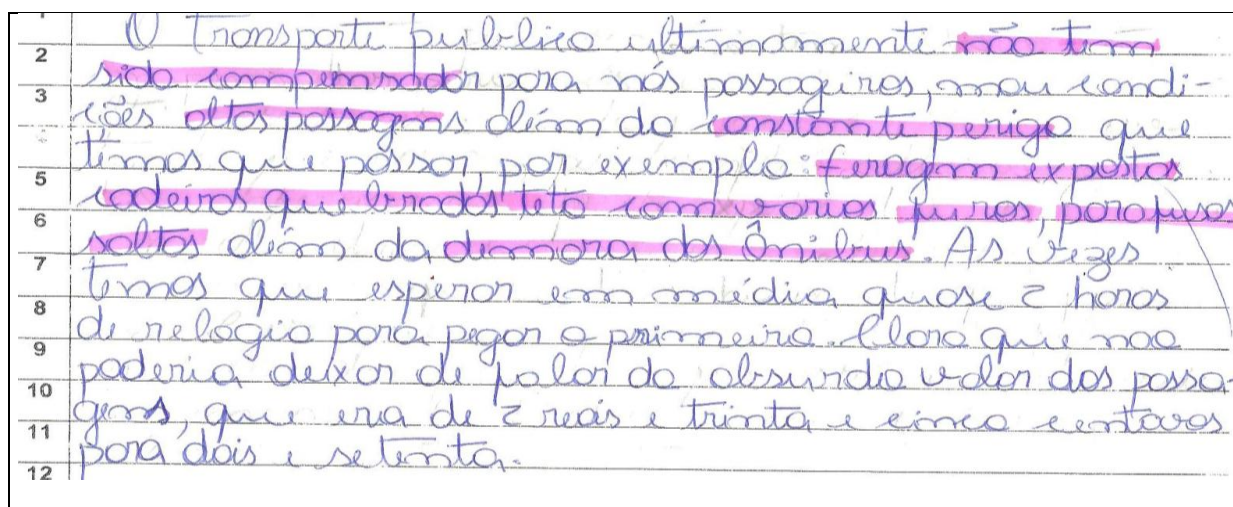 1
2 O Transporte público ultimamente não tem
3 sido compensador para nós passagiros, mau condi-
4 ções altas passagens além do constante perigo que
5 temos que passar, por exemplo: feragem expostas
6 cadeiras que bradas teto com varios furos, parafusos
7 soltos além da demora dos Ônibus. As vezes
8 temos que esperar em média quase 2 horas
9 de relogio para pegar o primeiro. Claro que nao
10 poderia deixar de falar do absurdo valor das passa-
11 gens, que era de 2 reais e trinta e cinco centavos
12 para dois e setenta.